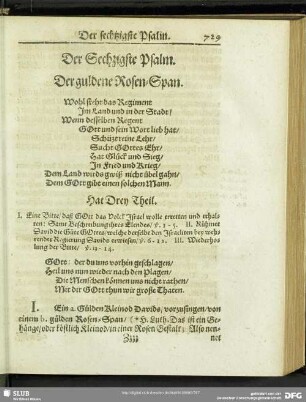 Der sechtzigste Psalm. 729
Der Sechzigste Psalm.
Der guldene Rosen/Span.
Wohl steht das Regiment
Im Land und in der Stadt/
Wenn desselben Regent
GOtt und sein Wort lieb hat/
Schützt reine Lehr/
Sucht GOttes Ehr/
Hat Glück und Sieg/
In Fried und Krieg/
Dem Land wird es gwiß nicht übel gahn/
Dem GOtt gibt einen solchen Mann.
Hat Drey Theil.
I. Eine Bitte/ daß GOtt das Volck Israel wolle erretten und erhal-
ten: Samt Beschreibung ihres Elendes/ ℣. 1-5. II. Rühmet
David die Güte GOttes/ welche derselbe den Israeliten bey weh-
render Regierung Davids erwiesen/ ℣. 6-11. III. Wiederho-
lung der Bitte/ ℣. 12-14.
GOtt: der du uns vorhin geschlagen/
Heil uns nun wieder nach den Plagen/
Die Menschen können uns nicht rathen/
Mit der GOtt thun wir große Thaten.
I. Ein a. Gülden Kleinod Davids/ vorzusingen/ von
einem b. gülden Rosen-Span/ († H. Luth. Das ist ein Ge-
hänge/ oder köstlich Kleinod/ in einer Rosen Gestalt; Also nen-
Zzzz net
SLUB
DFG